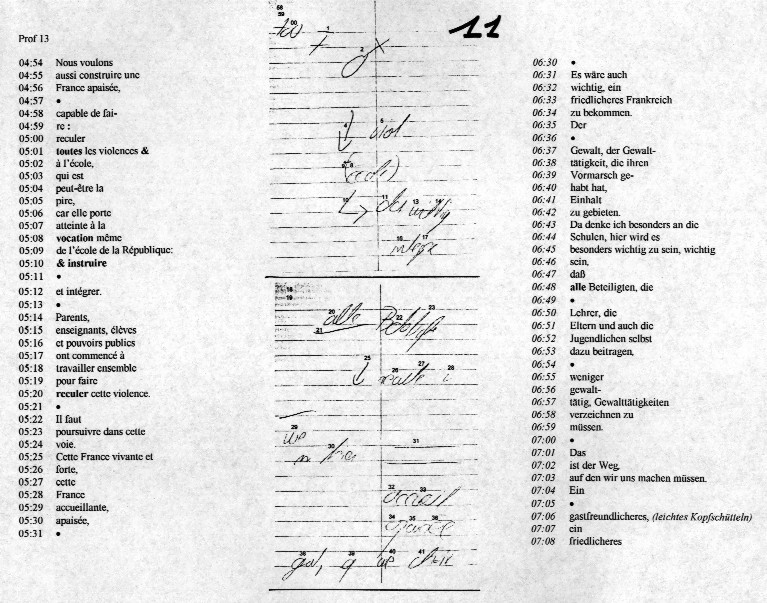 11
Prof 13
04:54 Nous voulons
04:55 aussi construire une
04:56 France apaisée,
04:57 •
04:58 capable de fai-
04:59 re :
05:00 reculer
05:01 toutes les violences &
05:02 à l'école,
05:03 qui est
05:04 peut-être la
05:05 pire,
05:06 car elle porte
05:07 atteinte à la
05:08 vocation même
05:09 de l'école de la République:
05:10 & instruire
05:11 •
05:12 et intégrer.
05:13 •
05:14 Parents,
05:15 enseignants, élèves
05:16 et pouvoirs publics
05:17 ont commencé à
05:18 travailler ensemble
05:19 pour faire
05:20 reculer cette violence.
05:21 •
05:22 Il faut
05:23 poursuivre dans cette
05:24 voie.
05:25 Cette France vivante et
05:26 forte,
05:27 cette
05:28 France
05:29 accueillante,
05:30 apaisée,
05:31 •
58
59
00
1
2
4
5
viol
10
11
13
14
16
17
18
19
20
22
23
alle
21
25
26
27
28
29
30
31
32
33
34
35
36
38
39
40
41
06:30 •
06:31 Es wäre auch
06:32 wichtig, ein
06:33 friedlicheres Frankreich
06:34 zu bekommen.
06:35 Der
06:36 •
06:37 Gewalt, der Gewalt-
06:38 tätigkeit, die ihren
06:39 Vormarsch ge-
06:40 habt hat,
06:41 Einhalt
06:42 zu gebieten.
06:43 Da denke ich besonders an die
06:44 Schulen, hier wird es
06:45 besonders wichtig zu sein, wichtig
06:46 sein,
06:47 daß
06:48 alle Beteiligten, die
06:49 •
06:50 Lehrer, die
06:51 Eltern und auch die
06:52 Jugendlichen selbst
06:53 dazu beitragen,
06:54 •
06:55 weniger
06:56 gewalt-
06:57 tätig, Gewalttätigkeiten
06:58 verzeichnen zu
06:59 müssen.
07:00 •
07:01 Das
07:02 ist der Weg,
07:03 auf den wir uns machen müssen.
07:04 Ein
07:05 •
07:06 gastfreundlicheres, (leichtes Kopfschütteln)
07:07 ein
07:08 friedlicheres